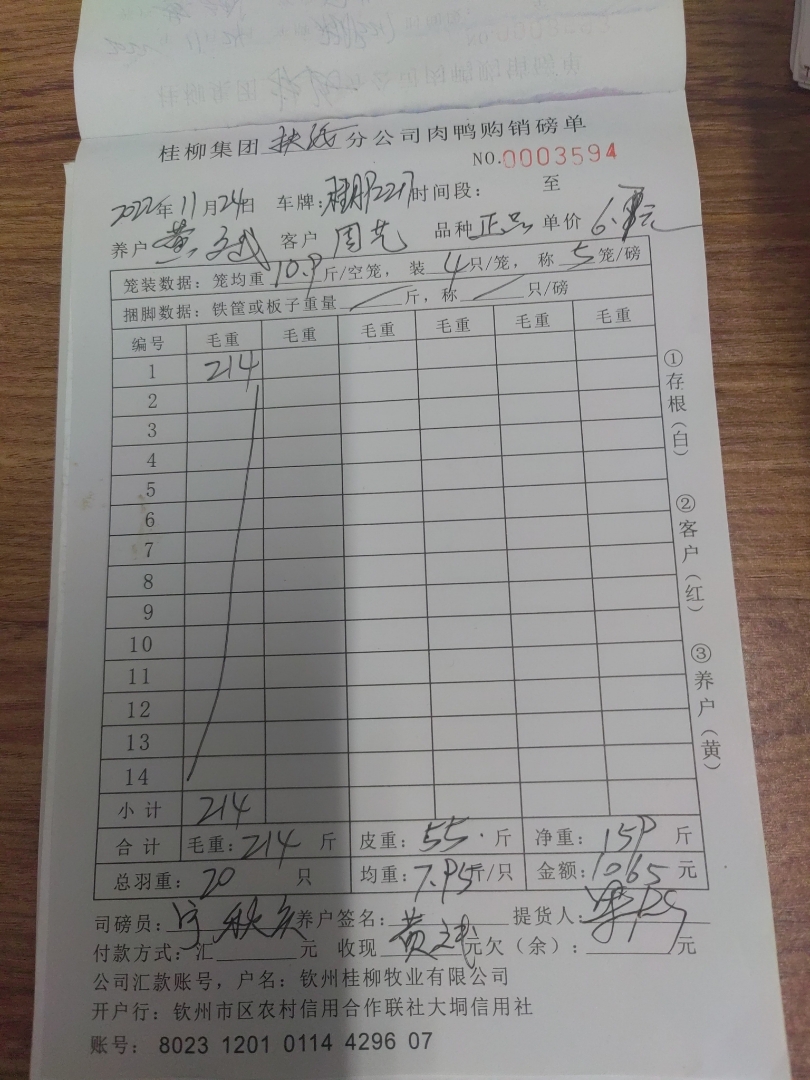 桂柳集团 分公司肉鸭购销磅单
NO.0003594
2022年11月24日 车牌: 时间段: 至
养户 黄 客户 周 品种 正品 单价 6. 元
笼装数据: 笼均重 10.9 斤/空笼, 装 4 只/笼, 称 5 笼/磅
捆脚数据: 铁筐或板子重量 斤, 称 只/磅
编号 毛重 毛重 毛重 毛重 毛重 毛重
1 214
2
3
4
5
6
7
8
9
10
11
12
13
14
小计 214
合计 毛重: 214 斤 皮重: 55. 斤 净重: 159 斤
总羽重: 20 只 均重: 7.95 斤/只 金额: 1065 元
司磅员: 养户签名: 黄 提货人:
付款方式: 汇 元 收现 元欠(余): 元
公司汇款账号, 户名: 钦州桂柳牧业有限公司
开户行: 钦州市区农村信用合作联社大垌信用社
账号: 8023 1201 0114 4296 07
①存根(白) ②客户(红) ③养户(黄)